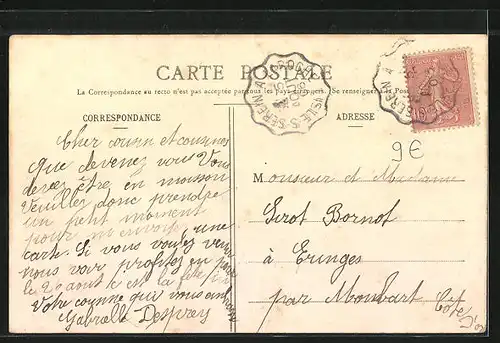 CARTE POSTALE
La Correspondance au recto n'est pas acceptée par tous les pays étrangers. (Se renseigner à la Poste)
CORRESPONDANCE
ADRESSE
9€
Cher cousin et cousines
Que devenez vous Vous
devez être en moisson
Veuiller donc prendre
un petit moment
pour m'envoyé une
carte. Si vous voulez venir
nous voir profitez en
le 20 aout c est la fête
Votre cousine qui vous aime
Gabrielle Desprey
Monsieur et Madame
Sirot Bornot
à Eringes
par Montbart Côte d'Or